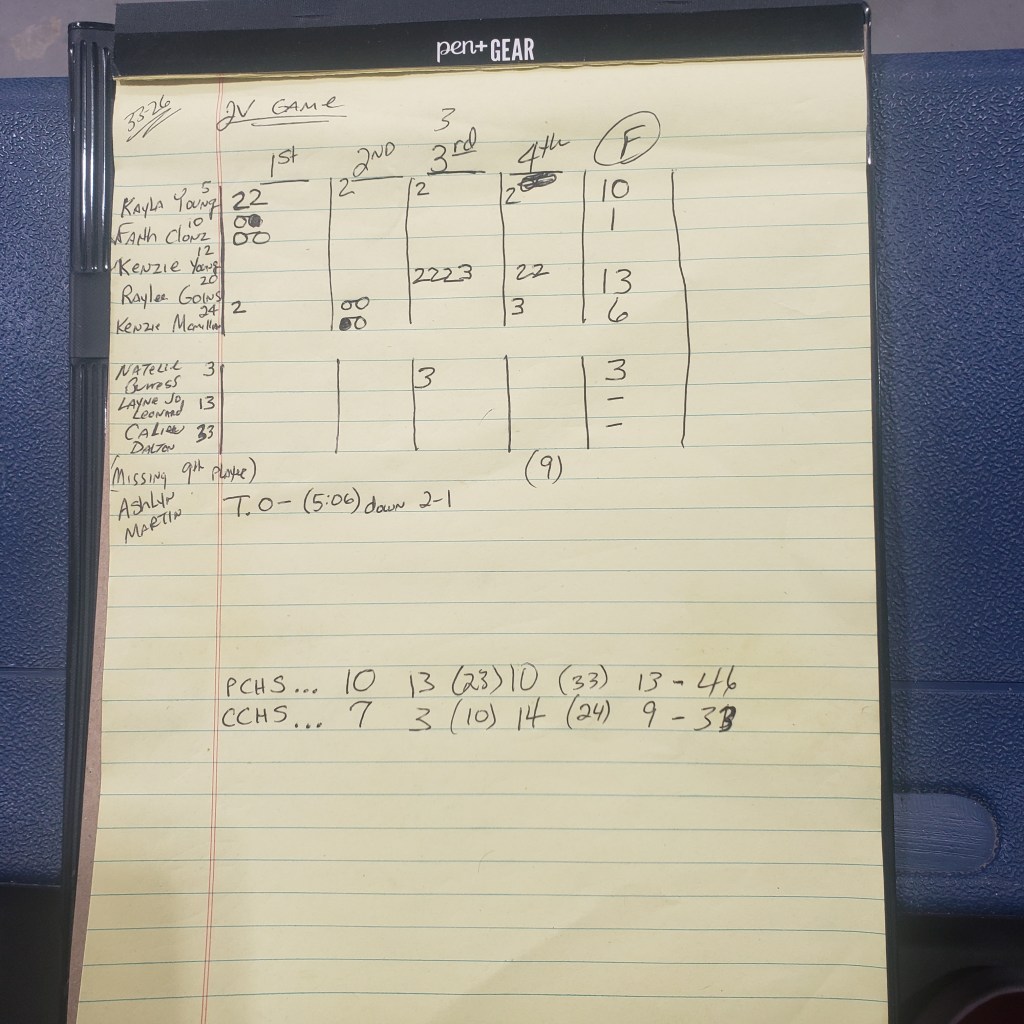 pen+ GEAR
33-26 JV GAME
3
1st 2ND 3rd 4th F
Kayla Young 5 22 2 2 2 10
10 00 1
Clonz 00
Kenzie Young 12 2223 22 13
Raylee Goins 20
Kenzie 24 2 00 3 6
00
Natelie 3 3 3
Burress
Layne Jo 13 -
Leonard
33 -
Dalton
(Missing 9th Player) (9)
Ashlyn T.O - (5:06) down 2-1
Martin
PCHS... 10 13 (23) 10 (33) 13 - 46
CCHS... 7 3 (10) 14 (24) 9 - 33